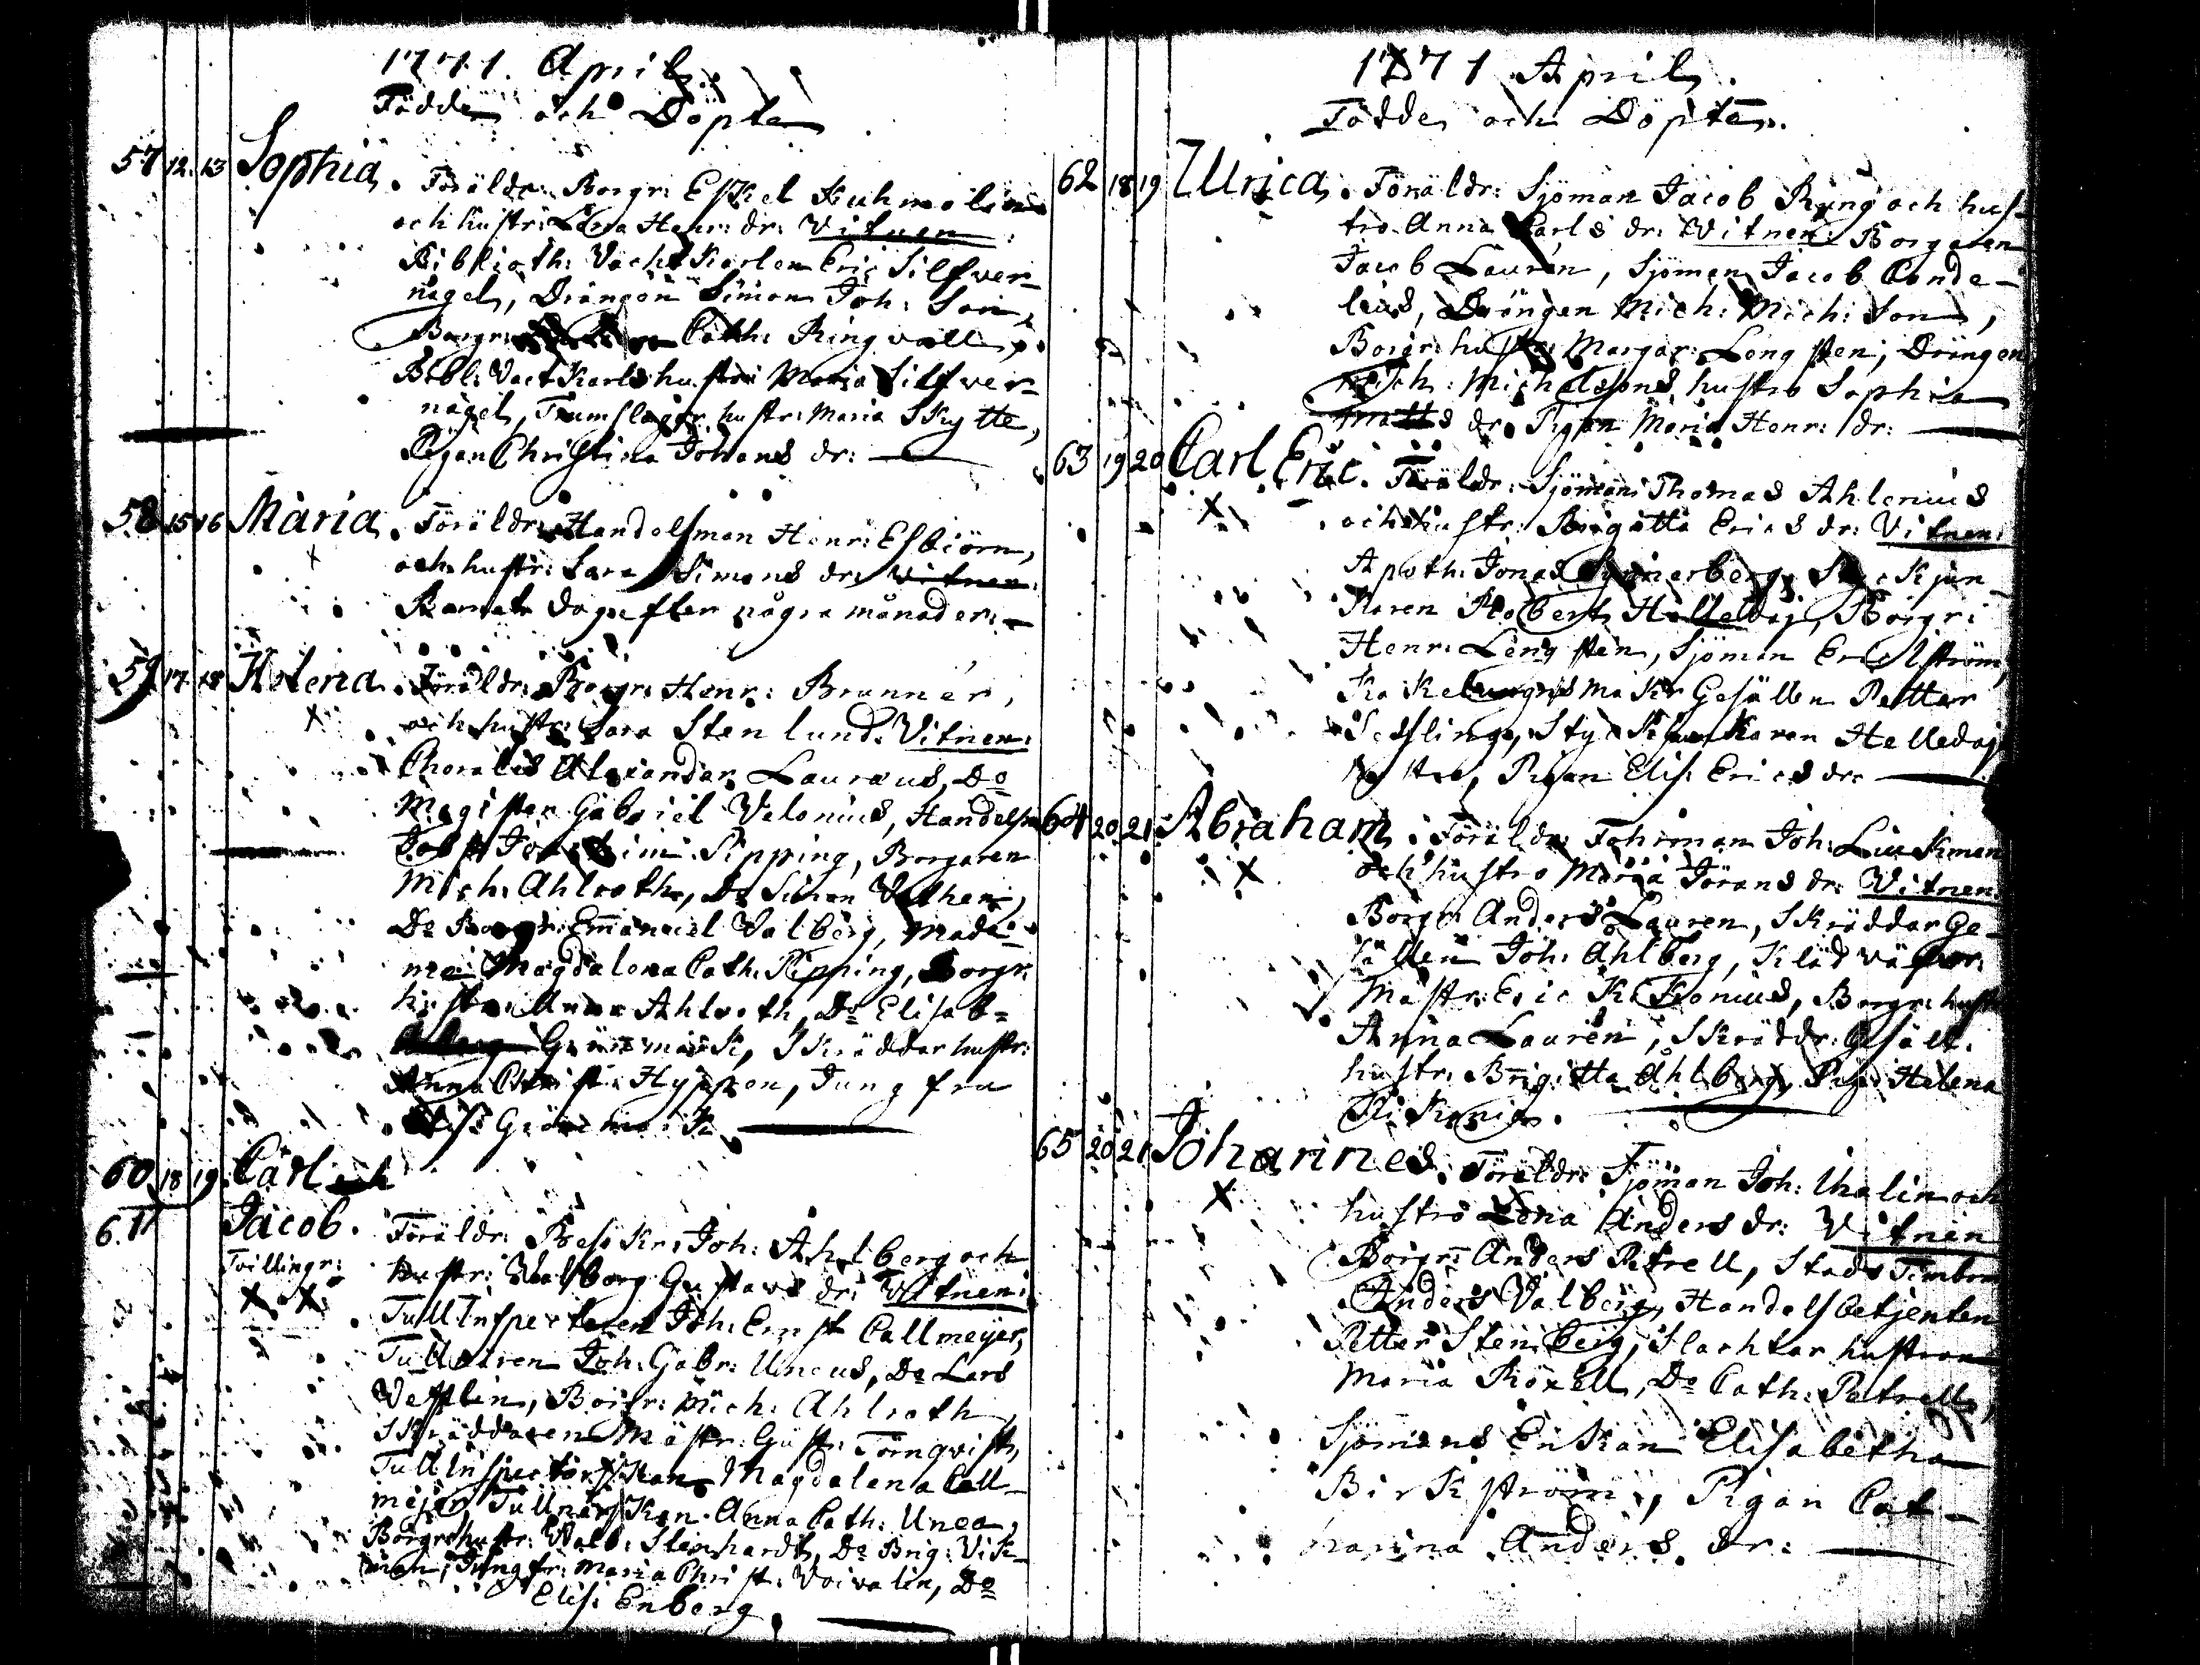 1771. April.
Födde och Döpte
57 12. 13 Sophia. Föräldr: Borgr: Eskel Kuhmolin
och hustr: Lena Henr: dr: Vitnen:
Biblioth: Vacht Karlen Eric Silfver-
nagel, Drängen Simon Joh: Son,
Borgr: Cath: Ringvall,
Bibl: Vact Karls hustru Maria Silfver-
nagel, Trumslagr hustr: Maria Skytte,
Pigan Christina Johans dr:
58 15 16 Maria. Föräldr: Handelsman Henr: Esbiörn,
och hustr: Sara Simons dr: Vitnen:
dagn efter några månader:
59 17 18 Helena. Föräldr: Borgr: Henr: Brunnér,
och hustr: Sara Stenlund. Vitnen:
Alexander Lauræus, Do
Magister Gabriel Velonius, Handelsm
Kipping, Borgaren
Mich: Ahlroth, Do Simon Vathen,
Do Borgr: Emanuel Valberg, Mada-
me Magdalena Cath: Kipping, Borgr:
hustr: Anna Ahlroth, Do Elisab=
Grönmark, Skräddar hustr:
Anna Christ: Hyppen, Jungfru
Elis: Grönmark
60 18 19 Carl och
61 Jacob. Föräldr: Besökr: Joh: Ahlberg och
Tvillingr: hustr: Valborg Gustavs dr: Vitnen:
Tull Inspectoren Joh: Ernst Callmeyer,
Tullnären Joh: Gabr: Uneus, Do Lars
Vestlin, Borgr: Mich: Ahlroth
Skräddaren Mästr: Gust: Törnqvist,
Tull Inspectorskan Magdalena Call-
mejer, Tullnärskan Anna Cath: Unea,
Borgr hustr: Valb: Steinhardt, Do Brig: Vik-
man, Jungfr: Maria Christ: Voivalin, Do
Elis: Enberg
1771 April.
Födde och Döpte.
62 18 19 Ulrica. Föräldr: Sjöman Jacob Ring och hus-
tro Anna Carls dr: Vitnen: Borgaren
Jacob Laurén, Sjöman Jacob Cande-
leus, Drängen Mich: Mich: Son,
Borgr: hustr: Margar: Longsten, Drängen
Mich: Michelsons hustro Sophia
Matts dr, Pigan Maria Henr: dr:
63 19 20 Carl Eric. Föräldr: Sjöman Thomas Ahlenius
och hustr: Brigitta Erics dr: Vitnen:
Apoth: Jonas Synnerberg, Styckjun
Karen Robert Helledaj, Borgr:
Henr: Longsten, Sjöman Eric Ström,
Kakelungns makr Gesällen Petter
Sedling, Styckjunkaren Helledajs
hustro, Pigan Elis: Erics dr:
64 20 21 Abraham. Föräldr: Fohrman Joh: Liukman
och hustro Maria Jörans dr: Vitnen:
Borgr: Anders Lauren, Skräddar Ge-
sällen Joh: Ahlberg, Klädväfvar
Mästr: Eric Kekonius, Borgr: hustr
Anna Laurén, Skräddr: Gesäll
hustr: Brigitta Ahlberg, Pig: Helena
65 20 21 Johannes. Föräldr: Sjöman Joh: Thalin och
hustro Lena Anders dr: Vitnen
Borgr: Anders Petrell, Stads Timbm
Anders Valberg, Handelsbetjenten
Petter Stenberg, Slachtar hustron
Maria Roxell, Do Cath: Petrell,
Sjömans Enkan Elisabetha
Birkström, Pigan Cat-
harina Anders dr: